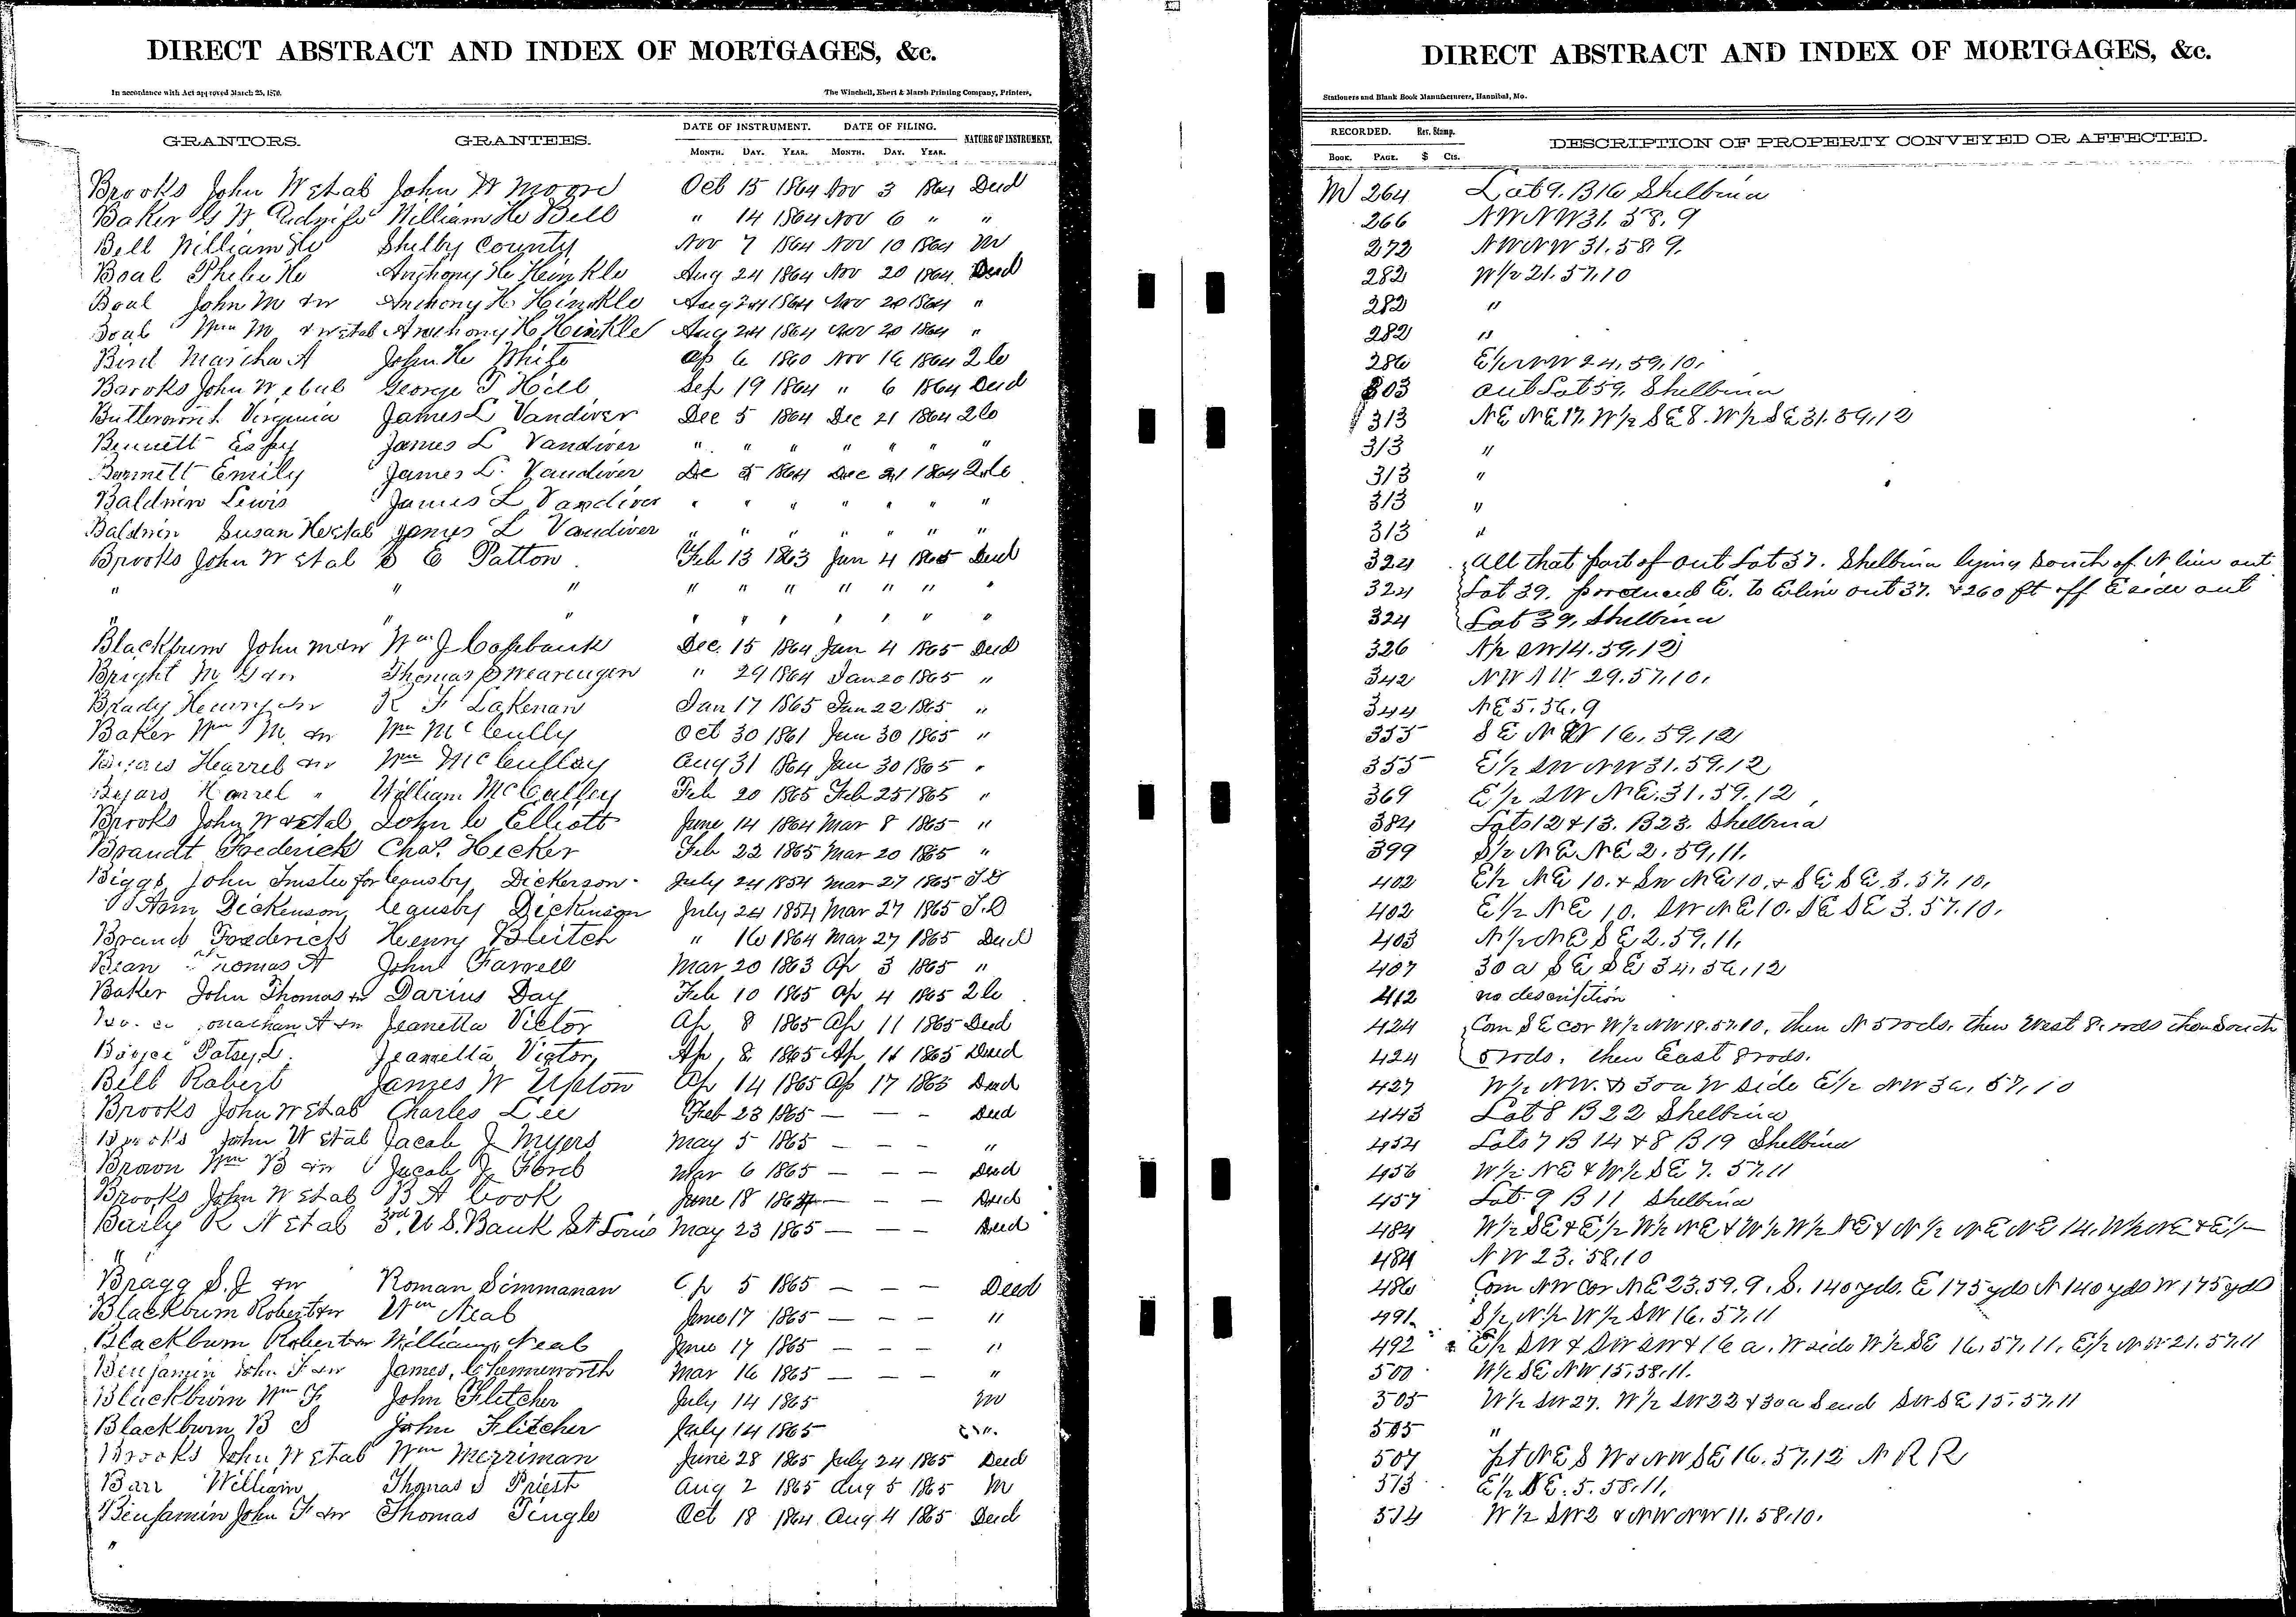 DIRECT ABSTRACT AND INDEX OF MORTGAGES, &c.
In accordance with Act approved March 25, 1870. The Winchell, Ebert & Marsh Printing Company, Printers,
GRANTORS. GRANTEES. DATE OF INSTRUMENT. DATE OF FILING. NATURE OF INSTRUMENT.
MONTH. DAY. YEAR. MONTH. DAY. YEAR.
Brooks John W et al John W Moore Oct 15 1864 Nov 3 1864 Deed
Baker G W William H Bell " 14 1864 Nov 6 " "
Bell William H Shelby County Nov 7 1864 Nov 10 1864 M
Boal Phebe H Anthony H Hinkle Aug 24 1864 Nov 20 1864 Deed
Boal John M & w Anthony H. Hinkle Aug 24 1864 Nov 20 1864 "
Boal Wm M & w et al Anthony H Hinkle Aug 24 1864 Nov 20 1864 "
Bird Martha A John H White Ap 6 1860 Nov 16 1864 2 C
Brooks John W et al George T Hill Sep 19 1864 " 6 1864 Deed
Butterworth Virginia James L Vandiver Dec 5 1864 Dec 21 1864 2 C
Bennett James L Vandiver " " " " " " "
Bennett Emily James L. Vandiver De 5 1864 Dec 21 1864 2 C
Baldwin Lewis James L Vandiver " " " " " " "
Baldwin Susan H et al James L Vandiver " " " " " " "
Brooks John W et al E Patton Feb 13 1863 Jan 4 1865 Deed
" " " " " " " " " "
" " " " " " " " "
Blackburn John M & w Wm J Dec. 15 1864 Jan 4 1865 Deed
Bright M & w Thomas Swearengen " 29 1864 Jan 20 1865 "
Brady Henry & w R F Lakenan Jan 17 1865 Jan 22 1865 "
Baker Wm M. & w Wm McCully Oct 30 1861 Jan 30 1865 "
Harrel & w Wm McCulley Aug 31 1864 Jan 30 1865 "
Byars Harrel " William McCulley Feb 20 1865 Feb 25 1865 "
Brooks John W et al John C Elliott June 14 1864 Mar 8 1865 "
Brandt Frederick Chas. Hecker Feb 22 1865 Mar 20 1865 "
Biggs John Trustee for Causby Dickerson July 24 1854 Mar 27 1865 T.D
Ann Dickenson Causby Dickinson July 24 1854 Mar 27 1865 T.D
Brand Frederick Henry Bleitch " 16 1864 Mar 27 1865 Deed
Bean Thomas A John Farrell Mar 20 1863 Ap 3 1865 "
Baker John Thomas & w Darius Day Feb 10 1865 Ap 4 1865 2 C
Jonathan A & w Jeanetta Victor Ap 8 1865 Ap 11 1865 Deed
Patsy L. Jeanetta Victor Ap. 8 1865 Ap 11 1865 Deed
Bell Robert James W Upton Ap 14 1865 Ap 17 1865 Deed
Brooks John W et al Charles Lee Feb 23 1865 — — — Deed
Brooks John W et al Jacob J Myers May 5 1865 — — — "
Brown Wm B & w Jacob J Ford Mar 6 1865 — — — Deed
Brooks John W et al B A Cook June 18 — — — Deed
Baily R N et al 3rd. U S. Bank St Louis May 23 1865 — — — Deed
"
Bragg S. J & w Roman Simmanan Ap 5 1865 — — — Deed
Blackburn Robert & w Wm Neal June 17 1865 — — — "
Blackburn Robert & w William Neal June 17 1865 — — — "
Benjamin John F & w James Mar 16 1865 — — — "
Blackburn Wm F. John Fletcher July 14 1865 M
Blackburn B S John Fletcher July 14 1865
Brooks John W et al Wm Merriman June 28 1865 July 24 1865 Deed
Barr William Thomas S Priest Aug 2 1865 Aug 5 1865 M
Benjamin John F & w Thomas Tingle Oct 18 1864 Aug 4 1865 Deed
"
DIRECT ABSTRACT AND INDEX OF MORTGAGES, &c.
Stationers and Blank Book Manufacturers, Hannibal, Mo.
RECORDED. Rev. Stamp. DESCRIPTION OF PROPERTY CONVEYED OR AFFECTED.
BOOK. PAGE. $ Cts.
M 264 Lot 9. B 16 Shelbina
266 NW NW 31. 58. 9
272 NW NW 31. 58. 9.
282 W 1/2 21. 57. 10
282 "
282 "
286 E 1/2 NW 24. 59. 10.
303 out Lot 59, Shelbina
313 NE NE 17. W 1/2 SE 8. W 1/2 SE 31. 59. 12
313 "
313 "
313 "
313 "
324 All that part of out Lot 37. Shelbina lying South of N line out
324 Lot 39. produced E. to E line out 37. & 260 ft off E side out
324 Lot 39, Shelbina
326 N 1/2 SW 14. 59. 12
342 NW NW 29. 57. 10.
344 NE 5. 56. 9
355 SE NW 16. 59. 12
355 E 1/2 SW NW 31. 59. 12
369 E 1/2 SW NE. 31. 59. 12
384 Lots 12 & 13. B 23. Shelbina
399 S 1/2 NE NE 2. 59. 11.
402 E 1/2 NE 10. & SW NE 10. & SE SE. 3. 57. 10.
402 E 1/2 NE 10. SW NE 10. SE SE 3. 57. 10.
403 N 1/2 NE SE 2. 59. 11.
407 30 a SE SE 34. 56. 12
412 no description
424 Com SE cor W 1/2 NW 18. 57. 10, then N 5 rods. then West 8 rods then South
424 5 rods. then East 8 rods.
427 W 1/2 NW. & 30 a W side E 1/2 NW 3a. 57. 10
443 Lot 8 B 22 Shelbina
454 Lots 7 B 14 & 8 B 19 Shelbina
456 W 1/2 NE & W 1/2 SE 7. 57. 11
457 Lot. 9 B 11 Shelbina
484 W 1/2 SE & E 1/2 W 1/2 NE & W 1/2 W 1/2 NE & N 1/2 NE NE 14. W 1/2 NE & E 1/2
484 NW 23. 58. 10
486 Com NW cor NE 23. 59. 9. S. 140 yds. E 175 yds N 140 yds W 175 yds
491 S 1/2 N 1/2 W 1/2 SW 16. 57. 11
492 E 1/2 SW & SW SW & 16 a. W side W 1/2 SE 16. 57. 11. E 1/2 NW 21. 57. 11
500 W 1/2 SE NW 15. 58. 11.
505 W 1/2 SW 27. W 1/2 SW 22 & 30 a S end SW SE 15. 57. 11
505 "
507 pt NE S W & NW SE 16. 57. 12 N R R
513 E 1/2 SE. 5. 58. 11.
514 W 1/2 SW 2 & NW NW 11. 58. 10.